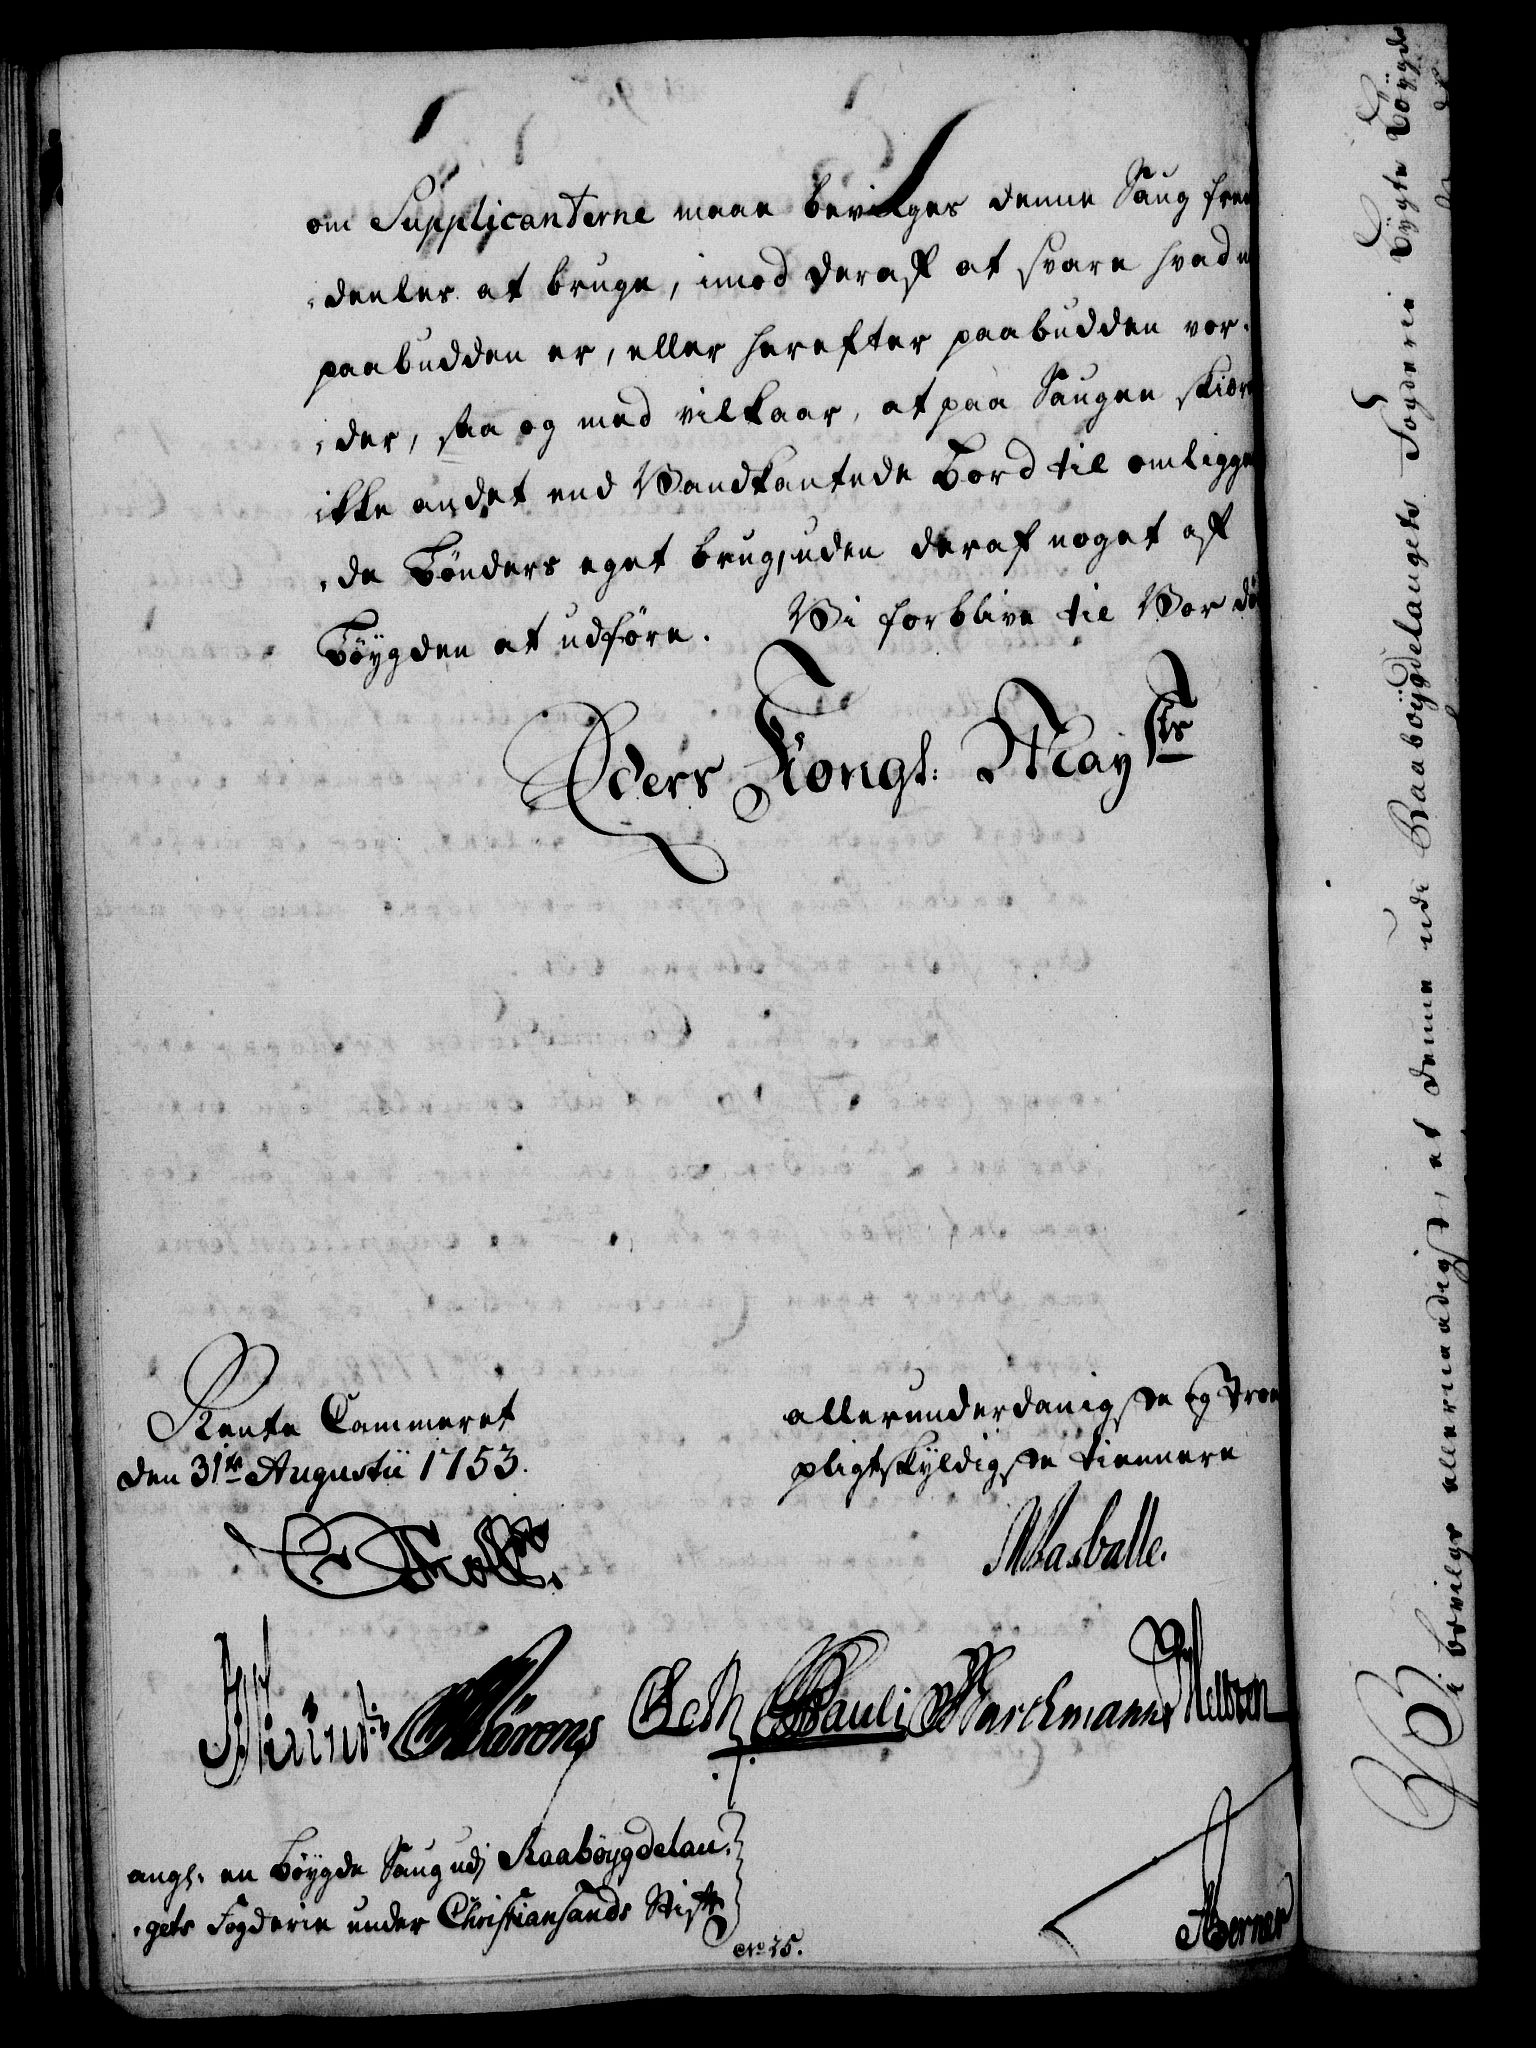 om Supplicanterne maae bevilges denne Saug frem
-deeles at bruge, imod deraf at svare hvad nu
paabudden er, eller herefter paabudden vor-
-der, saa og med vilkaar, at paa Saugen skiæres
ikke andet end Vandkantede Bord til omliggen
-de Bønders eget brug, uden deraf noget af
Bøygden at udføre. Vi forblive til Vor død
Eders Kongl: Mayts
Rente Cammeret
den 31te Augustii 1753.
allerunderdanigste og Troe
pligtskyldigste tiennere
Holst.
Rasballe.
Pauli Barchmann
angl: en Bøygde Saug udj Raabøygdelau-
-gets Fogderie under Christiansands Stift
No 25.
Berner
Vi bevilge allernaadigst, at denne udi Raabøygdelaugets Fogderie Bygte Bøygde